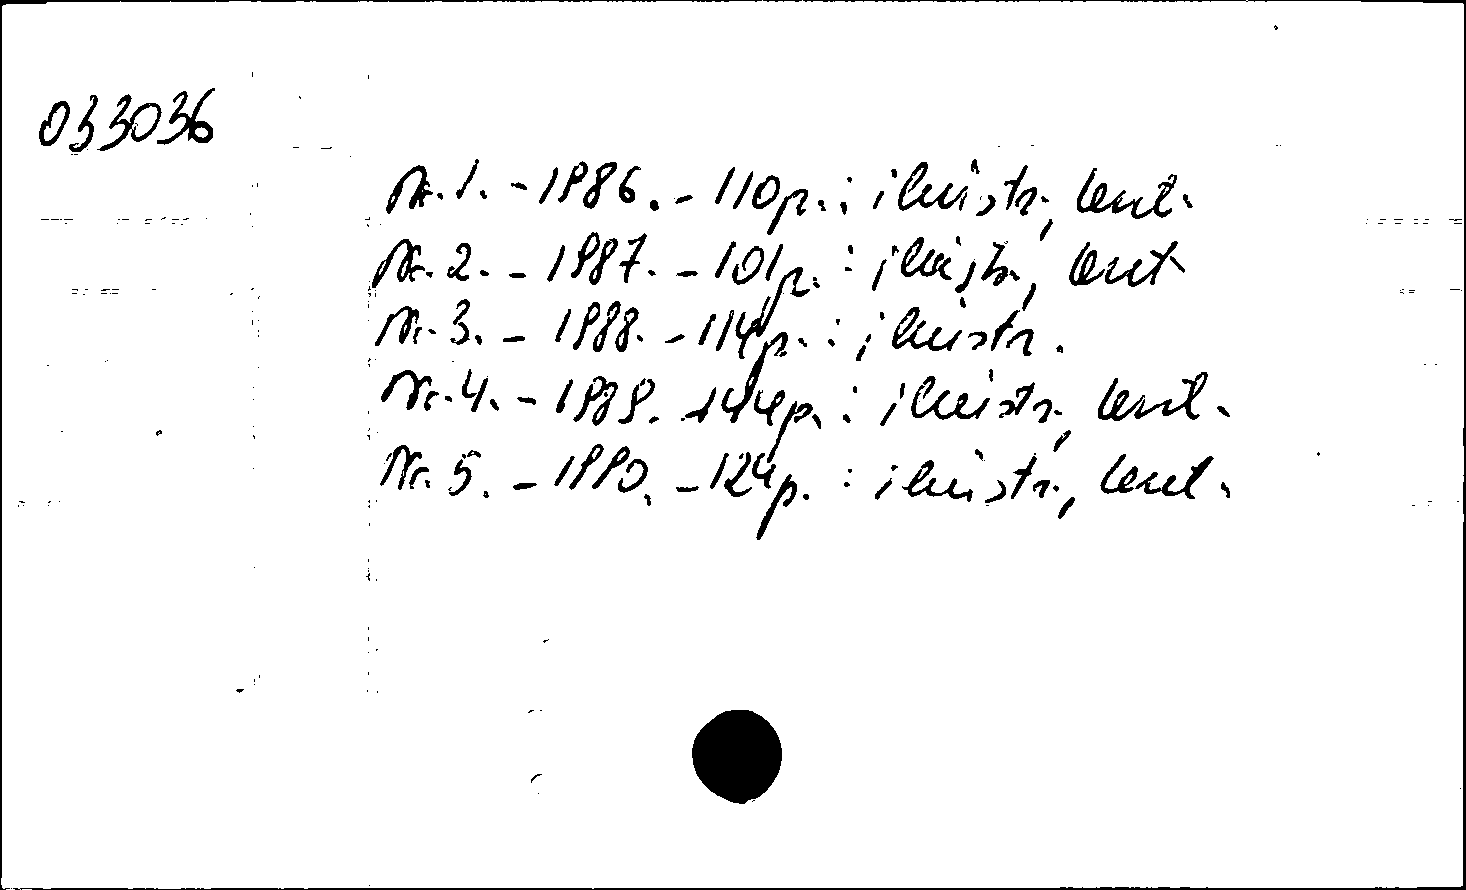 033036
Nr. 1. - 1986. - 110p. : iliustr., lent.
Nr. 2. - 1987. - 101p. : iliustr., lent
Nr. 3. - 1988. - 114p. : iliustr.
Nr. 4. - 1989. - 144p. : iliustr., lent.
Nr. 5. - 1990. - 124p. : iliustr., lent.